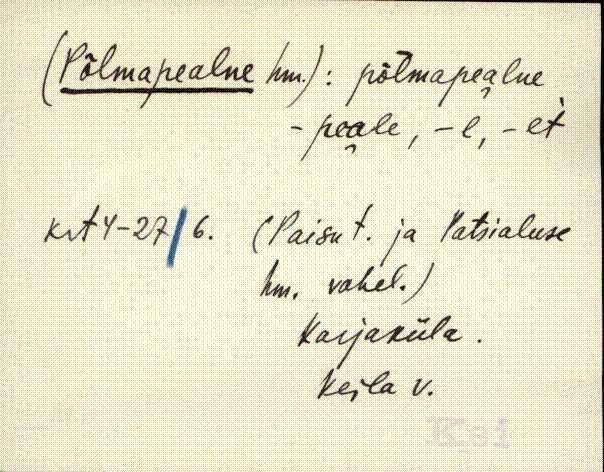 (Põlmapealne hm.): põlmapealne
- peale, -e, -et
krt 4-27/6. (Paisu t. ja Patsialuse
hm. vahel.)
Karjaküla.
Keila v.
Kei